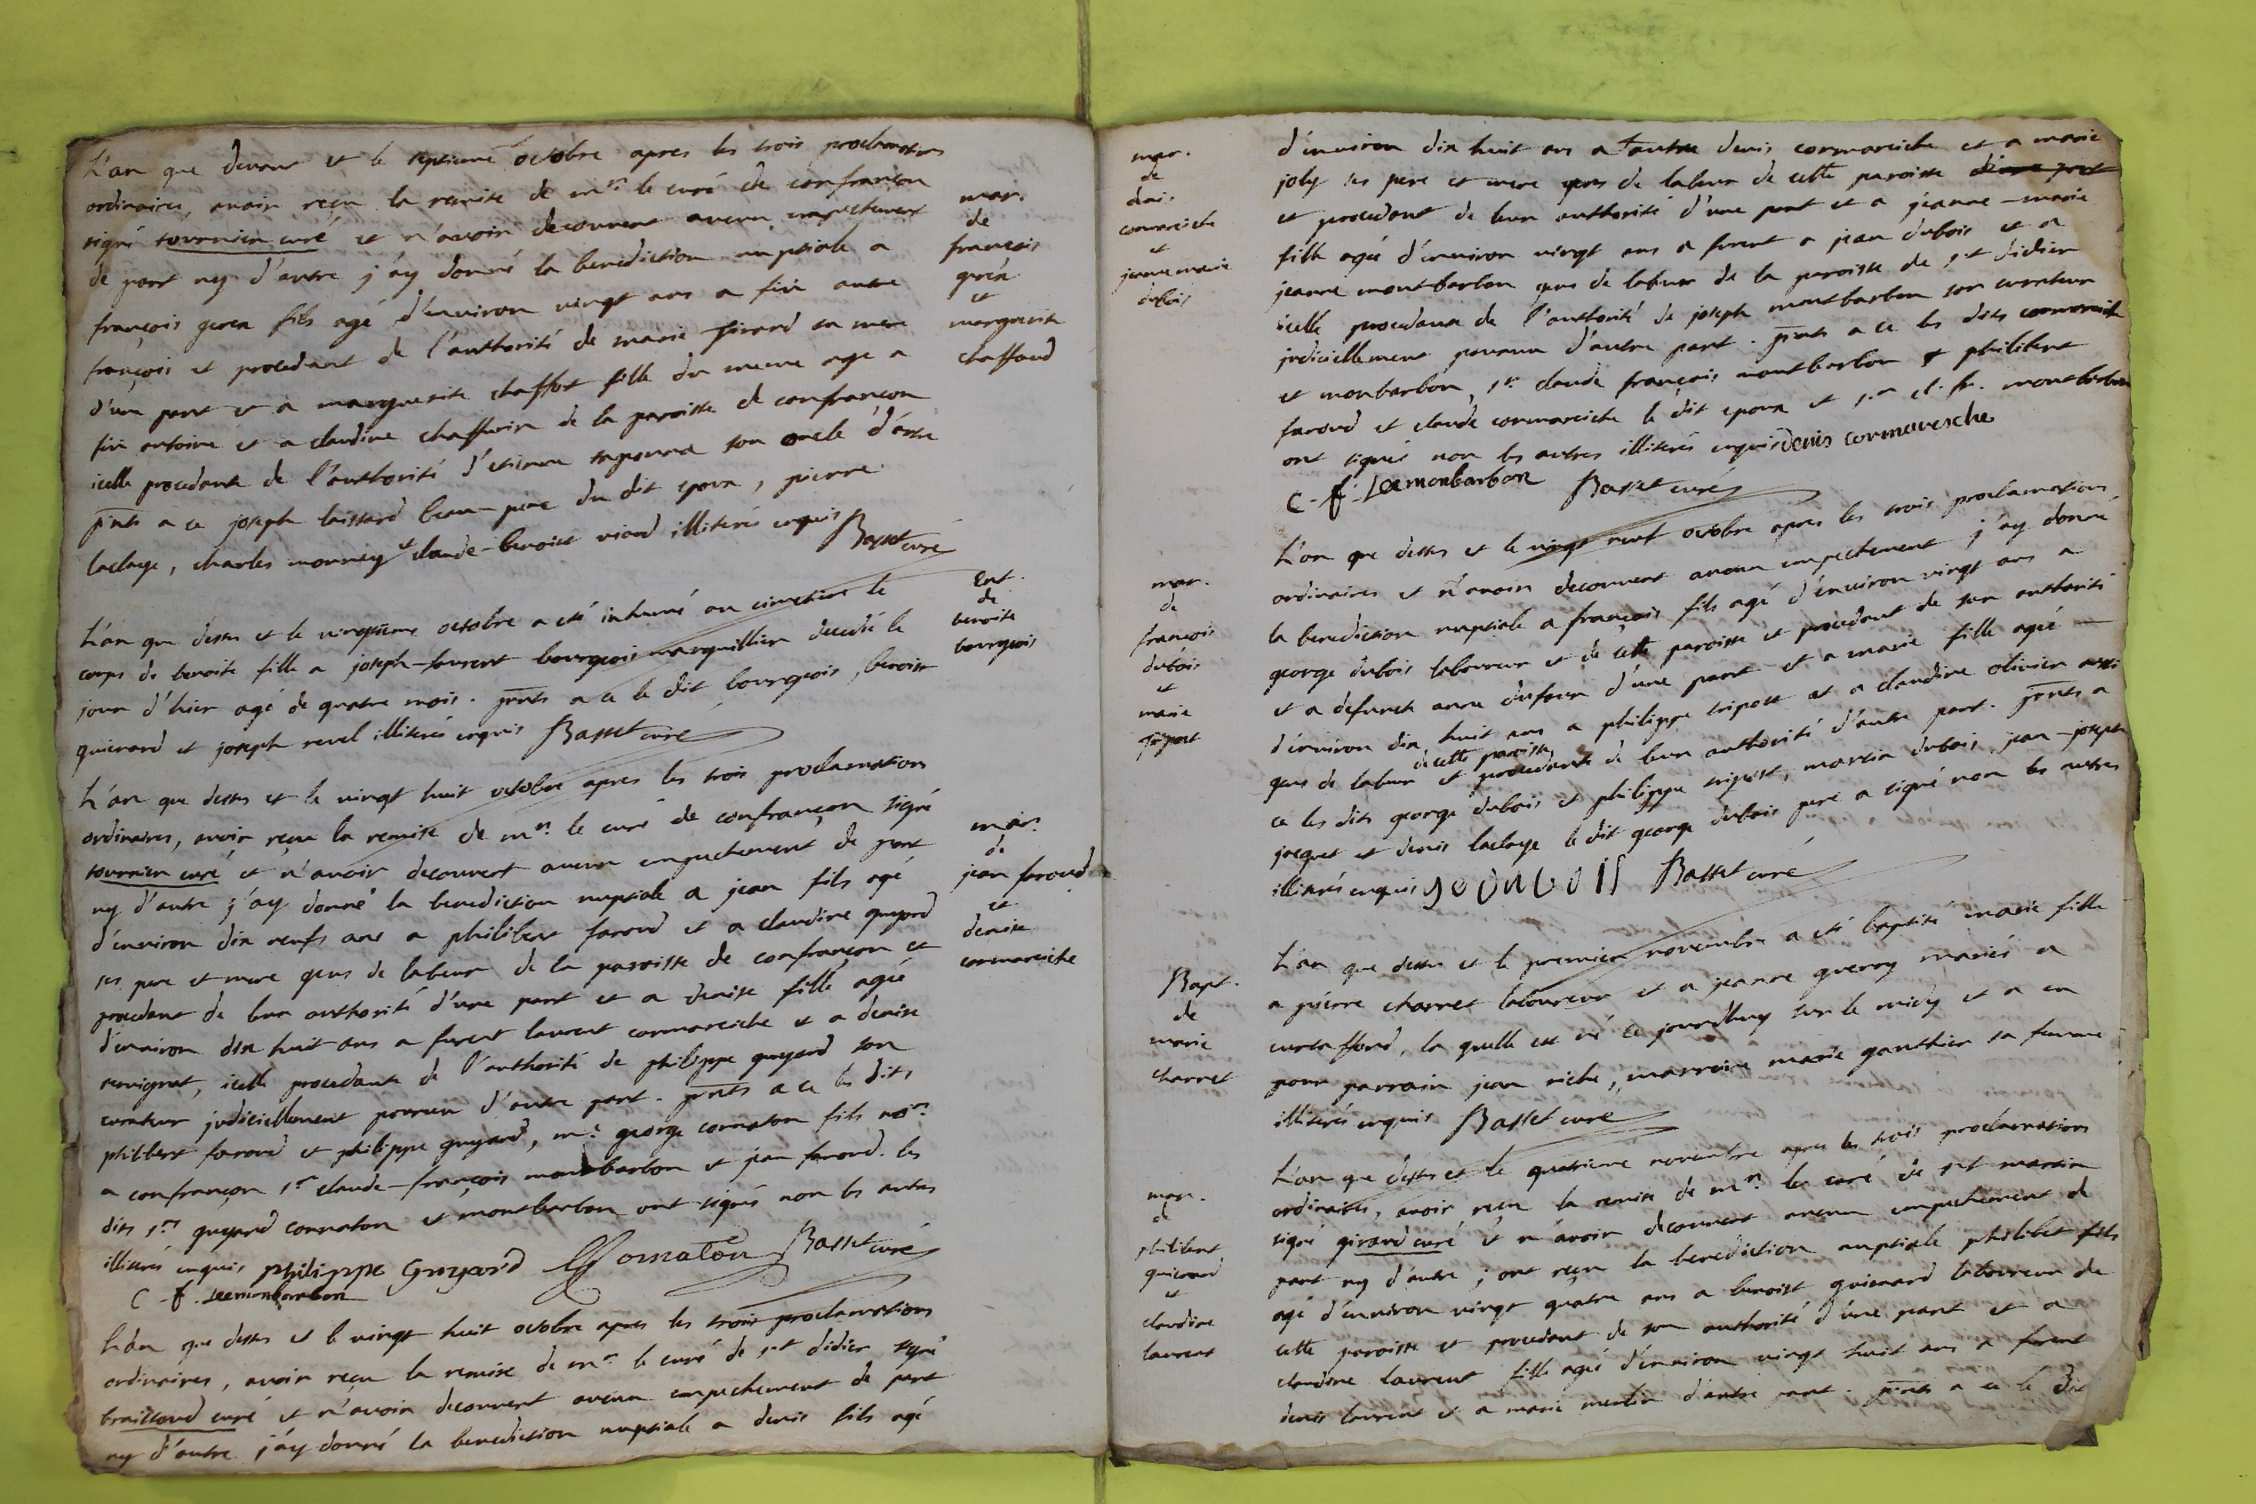 L'an que devant et le septieme octobre apres les trois proclamations
ordinaires, avoir reçu la remise de mr. le curé de confrançon
signé tournier curé et n'avoir decouvert aucun empechement
de part ny d'autre j'ay donné la benediction nuptiale a
françois grea fils agé d'environ vingt ans a feu autre
françois et procedant de l'authorité de marie pirard sa mere
d'une part et a marguerite chaffot fille du meme age a
feu antoine et a claudine chaffurin de la paroisse de confrançon
icelle procedante de l'authorité d'etienne son oncle d'autre
pnts a ce joseph laissard beau-pere du dit epoux, pierre
laclaye, charles monney et claude-benoist viard illiterés enquis Basset curé
mar.
de
françois
gréa
et
marguerite
chaffaud
L'an que dessus et le vingtieme octobre a eté inhumé au cimetiere le
corps de benoite fille a joseph-laurent bourgeois marguillier decedé le
jour d'hier agé de quatre mois. pnts a ce le dit bourgeois, benoist
guienard et joseph revel illiterés enquis Basset curé
Ent.
de
benoite
bourgeois
L'an que dessus et le vingt huit octobre apres les trois proclamations
ordinaires, avoir reçu la remise de mr. le curé de confrançon signé
tournier curé et n'avoir decouvert aucun empechement de part
ny d'autre j'ay donné la benediction nuptiale a jean fils agé
d'environ dix neufs ans a philibert faroud et a claudine guyard
ses pere et mere gens de labeur de la paroisse de confrançon et
procedant de leur authorité d'une part et a denise fille agée
d'environ dix huit ans a furent laurent cormareiche et a denise
revignet, icelle procedante de l'authorité de philippe guyard son
curateur judiciellement pourvu d'autre part. pnts a ce les dits
philibert faroud et philippe guyard, mr. george cornaton fils nore.
a confrançon sr claude-françois montbarbon et jean faroud. les
dits srs guyard cornaton et montbarbon ont signés non les autres
illiterés enquis philippe Guyard Cornaton Basset curé
C - f. Lee monbarbon
mar.
de
jean faroud
et
denise
cormareiche
L'an que dessus et le vingt huit octobre apres les trois proclamations
ordinaires, avoir reçu la remise de mr. le curé de st didier signé
braissoud curé et n'avoir decouvert aucun empechement de part
ny d'autre j'ay donné la benediction nuptiale a denis fils agé
mar.
de
denis
cormareiche
et
jeanne marie
dubois
d'environ dix huit ans a autre denis cormareiche et a marie
joly ses pere et mere gens de labeur de cette paroisse d'une part
et procedant de leur authorité d'une part et a jeanne-marie
fille agée d'environ vingt ans a furent a jean dubois et a
jeanne montbarbon gens de labeur de la paroisse de st didier
icelle procedante de l'authorité de joseph montbarbon son curateur
judiciellement pourvu d'autre part. pnts a ce les dits cormareiche
et monbarbon, sr. claude françois montbarbon philibert
faroud et claude cormareiche le dit epoux et sr cl. fr. montbarbon
ont signés non les autres illiterés enquis denis cormaresche
C - f - Lee monbarbon Basset curé
mar.
de
françois
dubois
et
marie
tripost
L'an que dessus et le vingt neuf octobre apres les trois proclamations
ordinaires et n'avoir decouvert aucun empechement j'ay donné
la benediction nuptiale a françois fils agé d'environ vingt ans a
george dubois laboureur et de cette paroisse et procedant de son authorité
et a defunte anne dufour d'une part et a marie fille agée
d'environ dix huit ans a philippe tripost et a claudine olivier aussi
de cette paroisse
gens de labeur et procedante de leur authorité d'autre part. pnts a
ce les dits george dubois et philippe tripost, martin dubois, jean-joseph
jacquet et denis laclaye le dit george dubois pere a signé non les autres
illiterés enquis gedubois Basset curé
Bapt.
de
marie
charret
L'an que dessus et le premier novembre a eté baptisé marie fille
a pierre charret laboureur et a jeanne guerry mariés a
curtaffond, la quelle est né ce jourdhuy sur le midy et a eu
pour parrain jean riche, marraine marie ganthier sa femme
illiterés enquis Basset curé
mar.
de
philibert
guienard
et
claudine
laurent
L'an que dessus et le quatrieme novembre apres les trois proclamations
ordinaires, avoir reçu la remise de mr. le curé de st martin
signé girard curé et n'avoir decouvert aucun empechement de
part ny d'autre j'ont reçu la benediction nuptiale philibert fils
agé d'environ vingt quatre ans a benoist guienard laboureur de
cette paroisse et procedant de son authorité d'une part et a
claudine laurent fille agée d'environ vingt huit ans a furent
denis laurent et a marie d'autre part. pnts a ce le dit